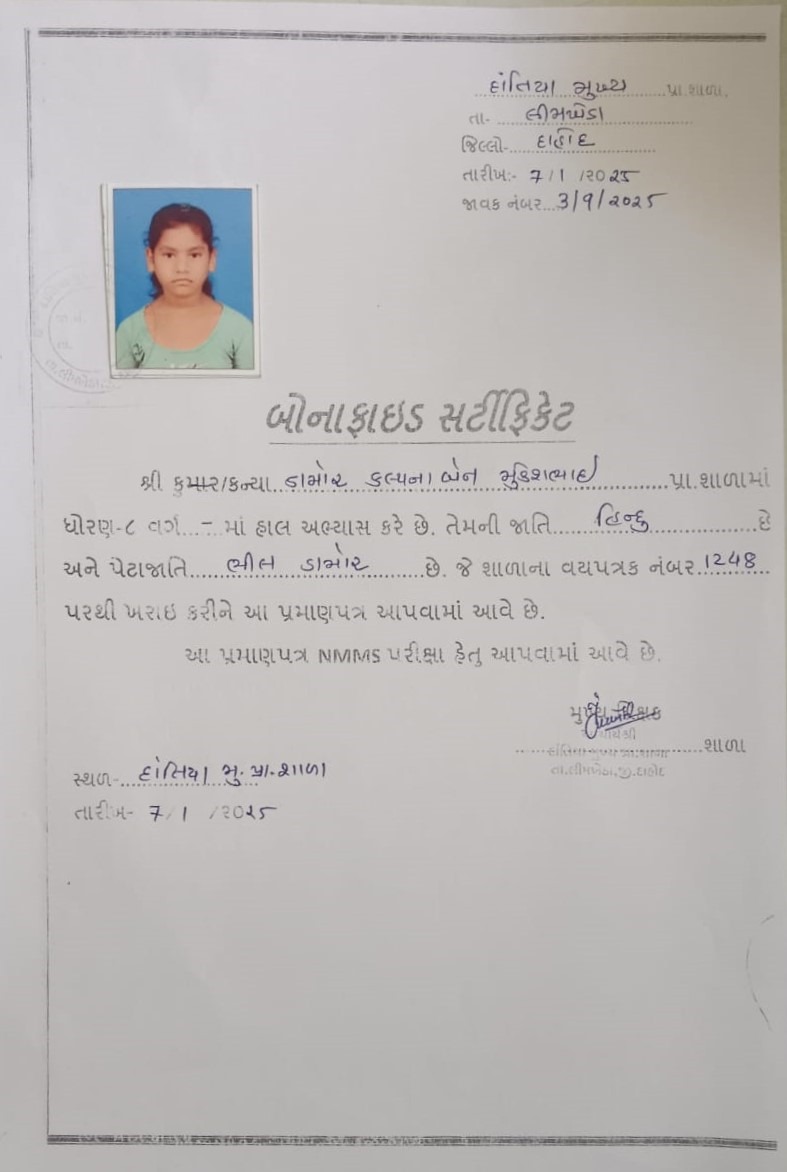 દાંતિયા મુખ્ય પ્રા.શાળા.
તા- લીમખેડા
જિલ્લો- દાહોદ
તારીખ:- 7/1/2025
જાવક નંબર...3/9/2025
બોનાફાઇડ સર્ટીફિકેટ
શ્રી કુમાર/કન્યા ડામોર કલ્પના બેન મુકેશભાઈ પ્રા.શાળામાં
ધોરણ-૮ વર્ગ...-માં હાલ અભ્યાસ કરે છે. તેમની જાતિ હિન્દુ છે
અને પેટાજાતિ ભીલ ડામોર છે. જે શાળાના વયપત્રક નંબર 1248
પરથી ખરાઇ કરીને આ પ્રમાણપત્ર આપવામાં આવે છે.
આ પ્રમાણપત્ર NMMS પરીક્ષા હેતુ આપવામાં આવે છે.
શાળા
તા.લીમખેડા,જી.દાહોદ
સ્થળ- દાંતિયા મુ. પ્રા. શાળા
તારીખ- 7/1/2025